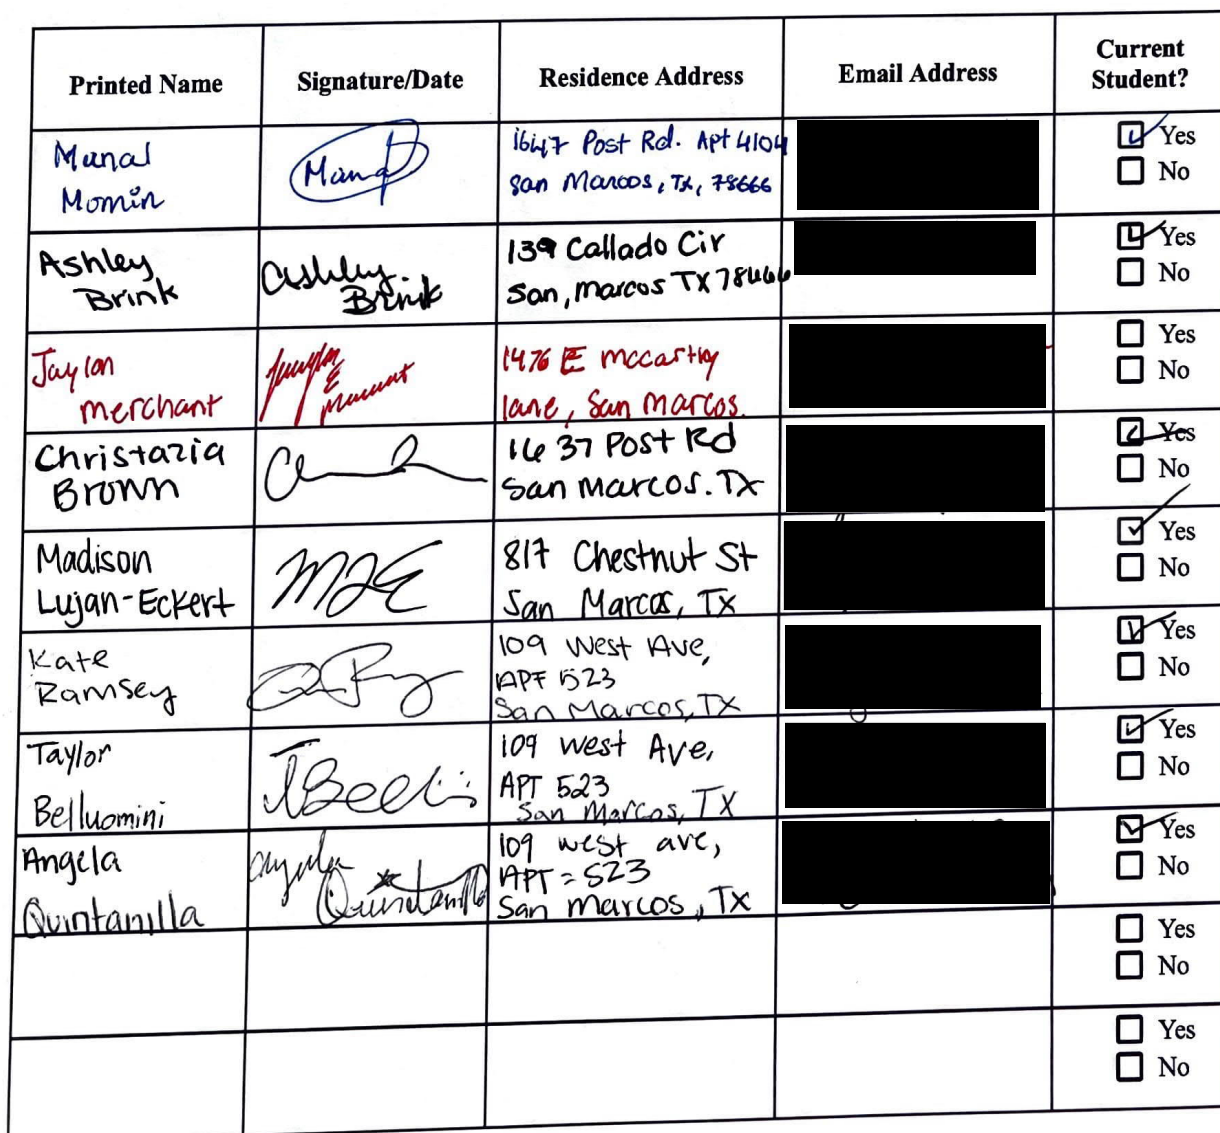 Printed Name Signature/Date Residence Address Email Address Current Student?
Manal
Momin
Manal
1647 Post Rd. Apt 4104
San Marcos, Tx, 78666
Yes
No
Ashley
Brink
Ashley
Brink
139 Callado Cir
San, Marcos TX 78666
Yes
No
Jaylon
merchant
1476 E mccarthy
lane, San Marcos.
Yes
No
Christazia
Brown
1637 Post Rd
San Marcos. TX
Yes
No
Madison
Lujan-Eckert
MLE
817 Chestnut St
San Marcos, TX
Yes
No
Kate
Ramsey
109 West Ave,
APT 523
San Marcos, TX
Yes
No
Taylor
Belluomini
109 West Ave,
APT 523
San Marcos, TX
Yes
No
Angela
Quintanilla
Angela
Quintanilla
109 west ave,
APT = 523
San marcos, TX
Yes
No
Yes
No
Yes
No